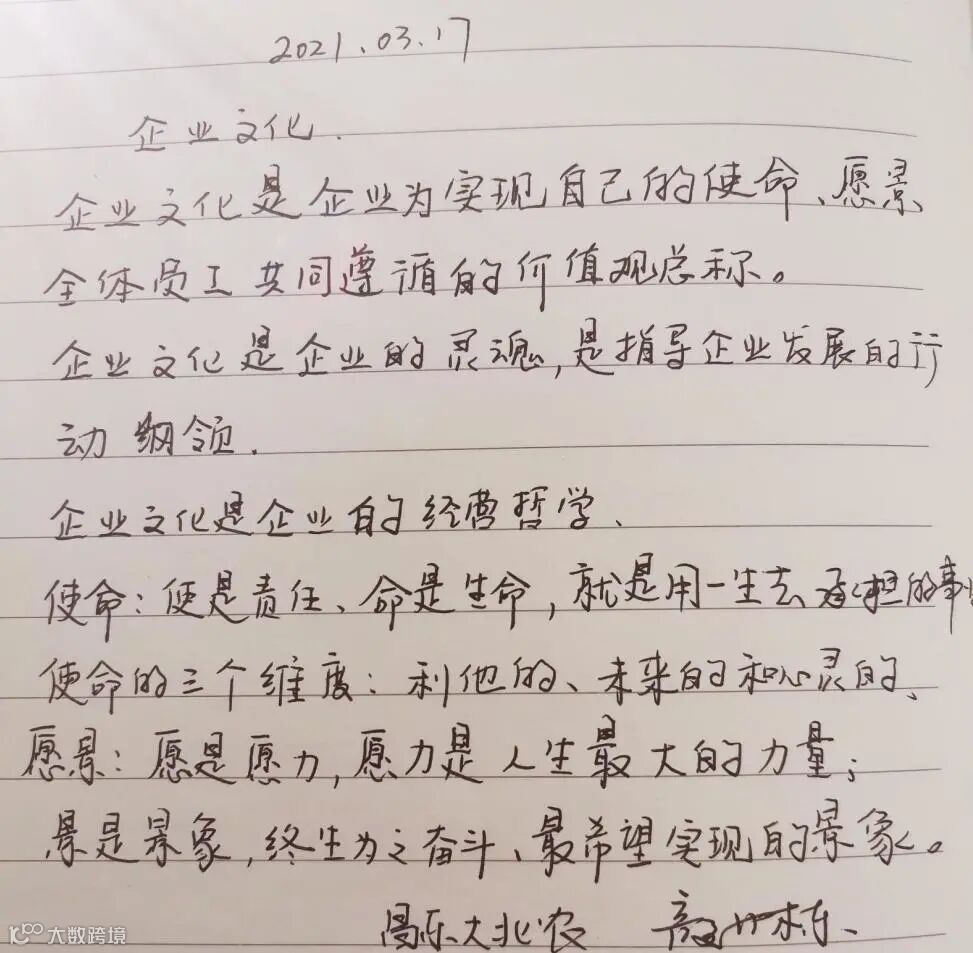 2021.03.17
企业文化.
企业文化是企业为实现自己的使命、愿景
全体员工共同遵循的价值观总称。
企业文化是企业的灵魂,是指导企业发展的行
动纲领.
企业文化是企业的经营哲学、
使命:使是责任、命是生命,就是用一生去承担的事
使命的三个维度:利他的、未来的和心灵的、
愿景:愿是愿力,愿力是人生最大的力量;
景是景象,终生为之奋斗、最希望实现的景象。
昌乐大北农
大数跨境